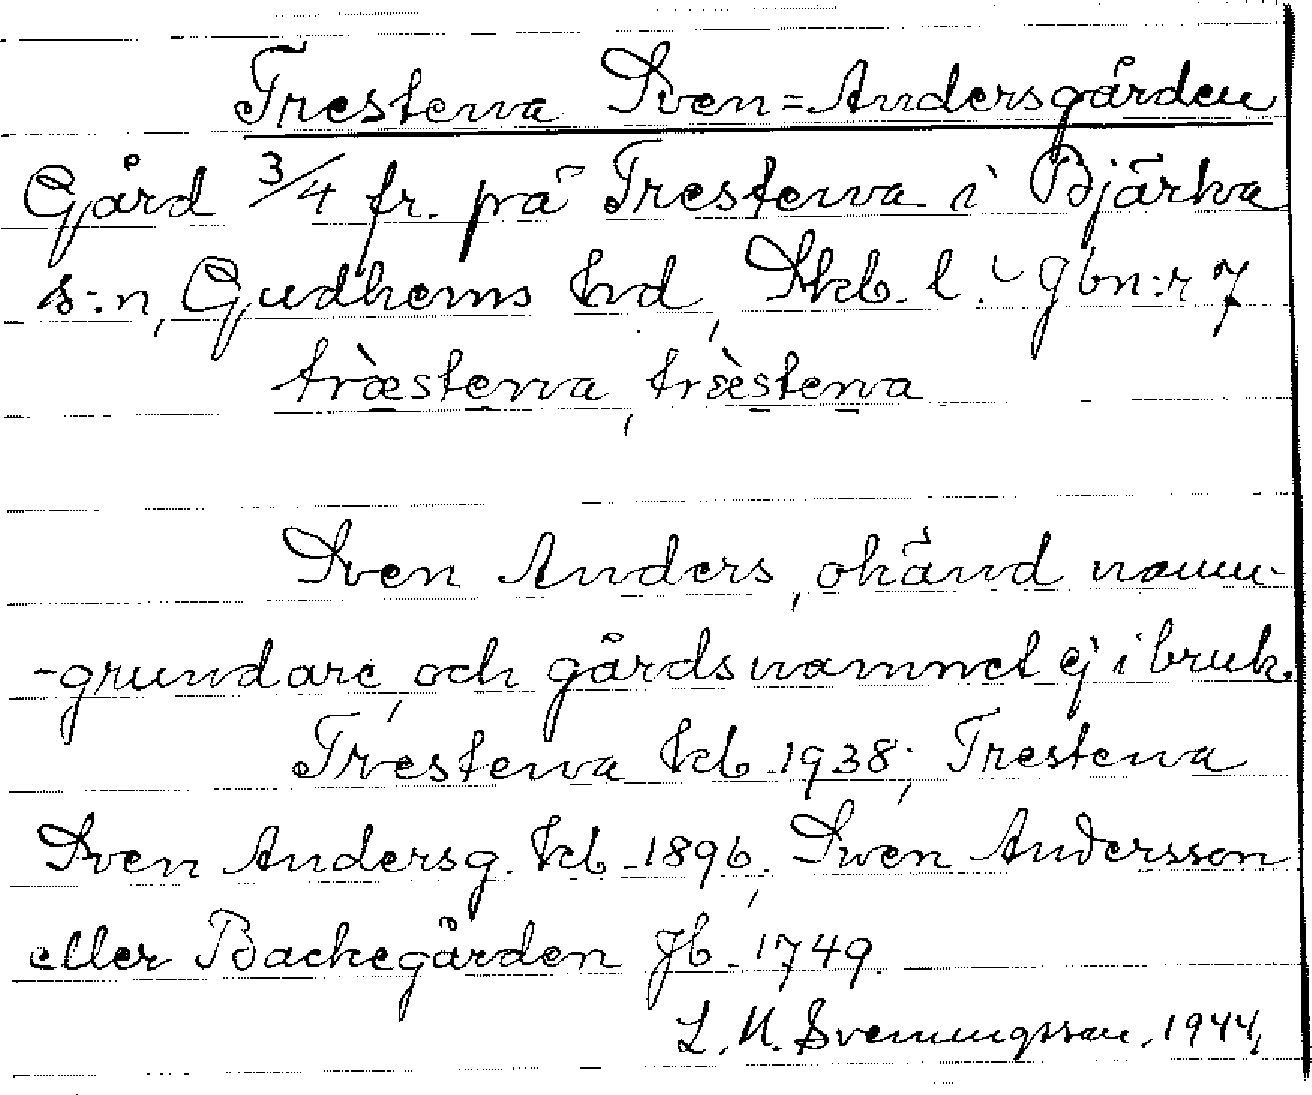 Trestena Sven=Andersgården
Gård 3/4 fr. på Trestena i Bjärka
s:n, Gudhems hd, Skb. l. gbn:r 7
træ̀stena, træ̀stena
Sven Anders, okänd namn-
-grundare, och gårdsnamnet ej i bruk.
Trestena kb. 1938; Trestena
Sven Andersg. kb. 1896, Swen Andersson
eller Backegården Jb. 1749
L. N. Svenungsson, 1944,